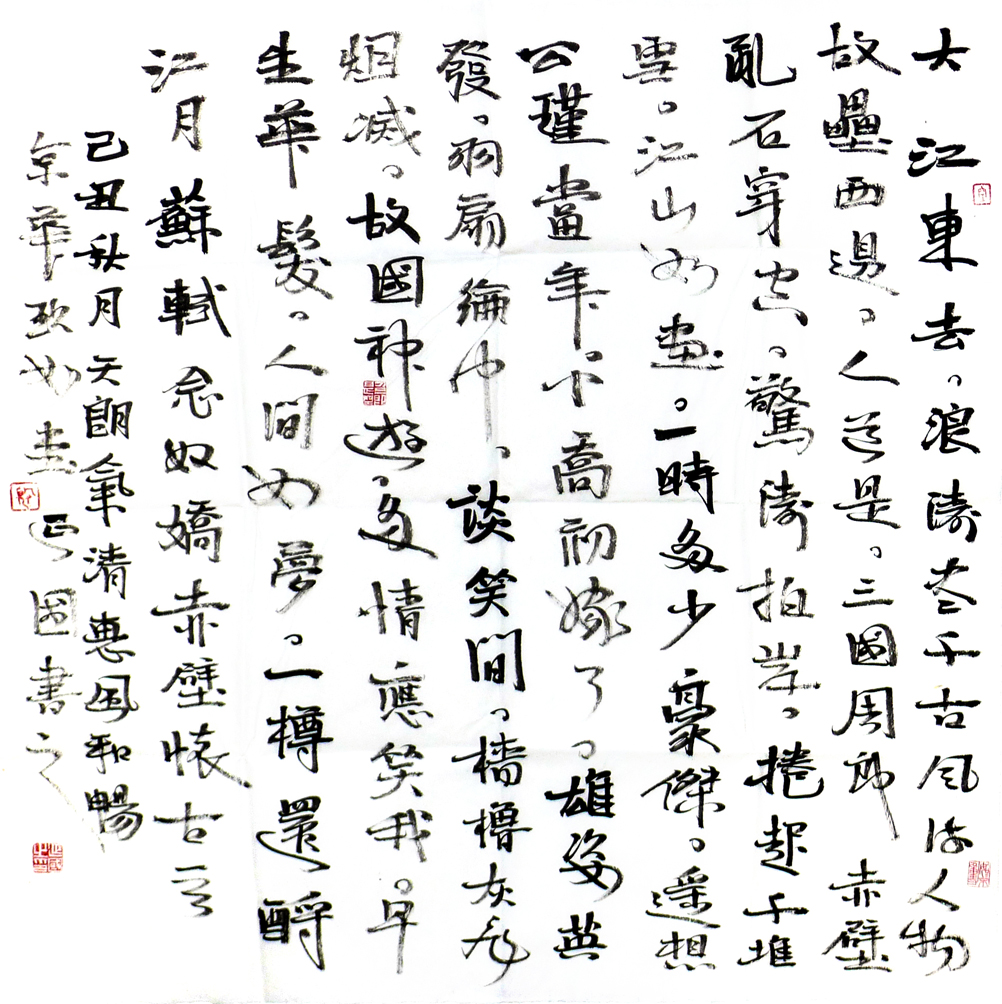 大江東去。浪濤盡千古風流人物
故壘西邊。人道是。三國周郎赤壁
亂石穿空。驚濤拍岸。捲起千堆
雪。江山如畫。一時多少豪傑。遥想
公瑾當年。小喬初嫁了。雄姿英
發。羽扇綸巾。談笑間。檣櫓灰飛
烟滅。故國神遊。多情應笑我。早
生華髮。人間如夢。一樽還酹
江月 蘇軾念奴嬌赤壁懷古
己丑秋月天朗氣清惠風和暢
京華 國書之